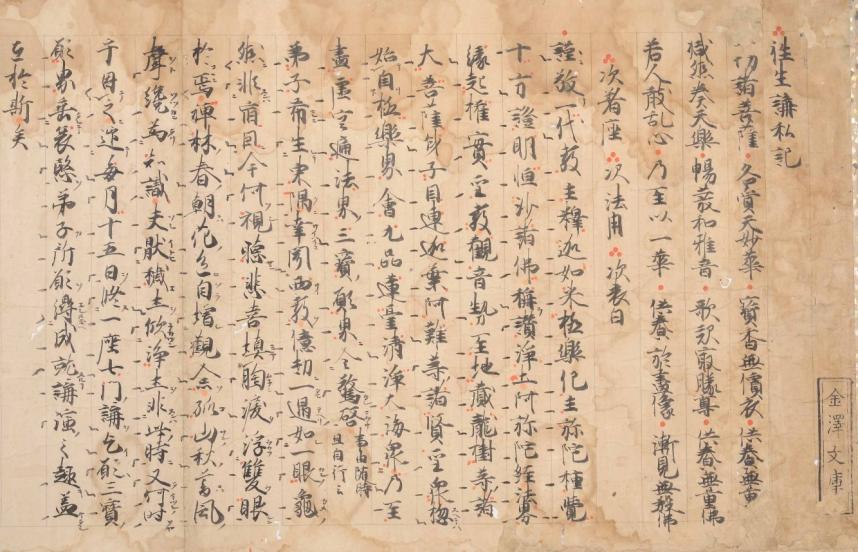 往生講私記
一切諸菩薩 各賫天妙華 寶香無價衣 供養無量佛
咸然奏天樂 暢發和雅音 歌歎最勝尊 供養無量佛
若人散乱心 乃至以一華 供養於畫像 漸見無数佛
次着座 次法用 次表白
謹敬一代教主釋迦如来極樂化主弥陀種覺
十方證明恒沙諸佛稱讃浄土阿弥陀経法界
縁起権實聖教觀音勢至地蔵龍樹等諸
大菩薩身子目連迦葉阿難等諸賢聖衆惣
始自極樂界會九品蓮臺清浄大海衆乃至
盡虚空遍法界三寶願界今驚啓
且自行云
弟子希生東隅幸聞西教億劫一遇如一眼龜
縦非宿因今何視聴悲喜填胸涙浮雙眼
於焉禅林春朝花色自増觀念孤山秋暮風
聲纔為知識夫猒穢土欣浄土非此時又何時
乎因之迎毎月十五日修一座七門講乞願三寶
願界垂哀愍弟子所願得成就講演之趣蓋
在於斯矣
金澤文庫